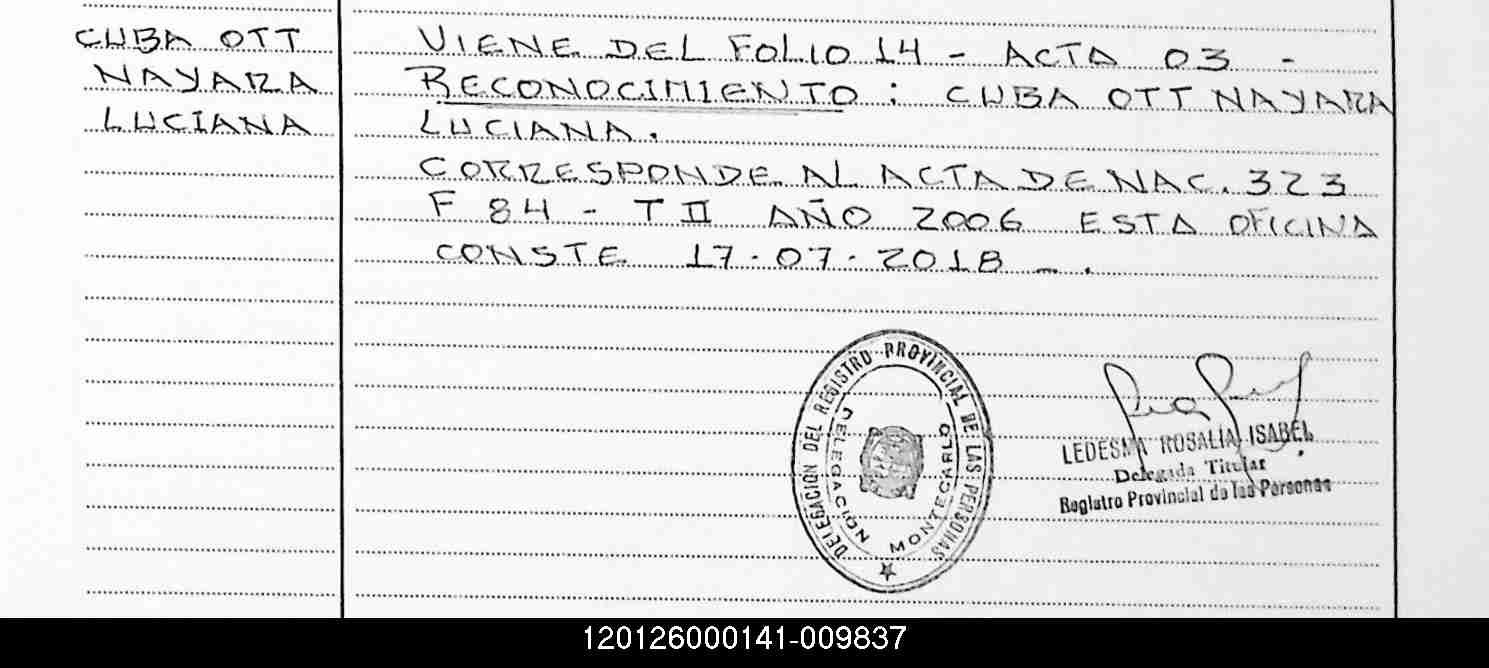 CUBA OTT
NAYARA
LUCIANA
VIENE DEL FOLIO 14 - ACTA 03 -
RECONOCIMIENTO : CUBA OTT NAYARA
LUCIANA.
CORRESPONDE AL ACTA DE NAC. 323
F 84 - T II AÑO 2006 ESTA OFICINA
CONSTE 17.07.2018 - .
DELEGACION DEL REGISTRO PROVINCIAL DE LAS PERSONAS
DELEGACIÓN MONTECARLO
LEDESMA ROSALIA ISABEL
Delegada Titular
Registro Provincial de las Personas
120126000141-009837